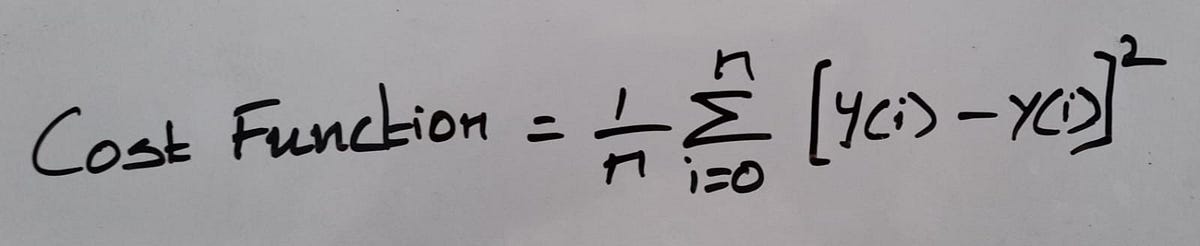 Cost Function = 1/n n Σ i=0 [y(i) - y(i)]²